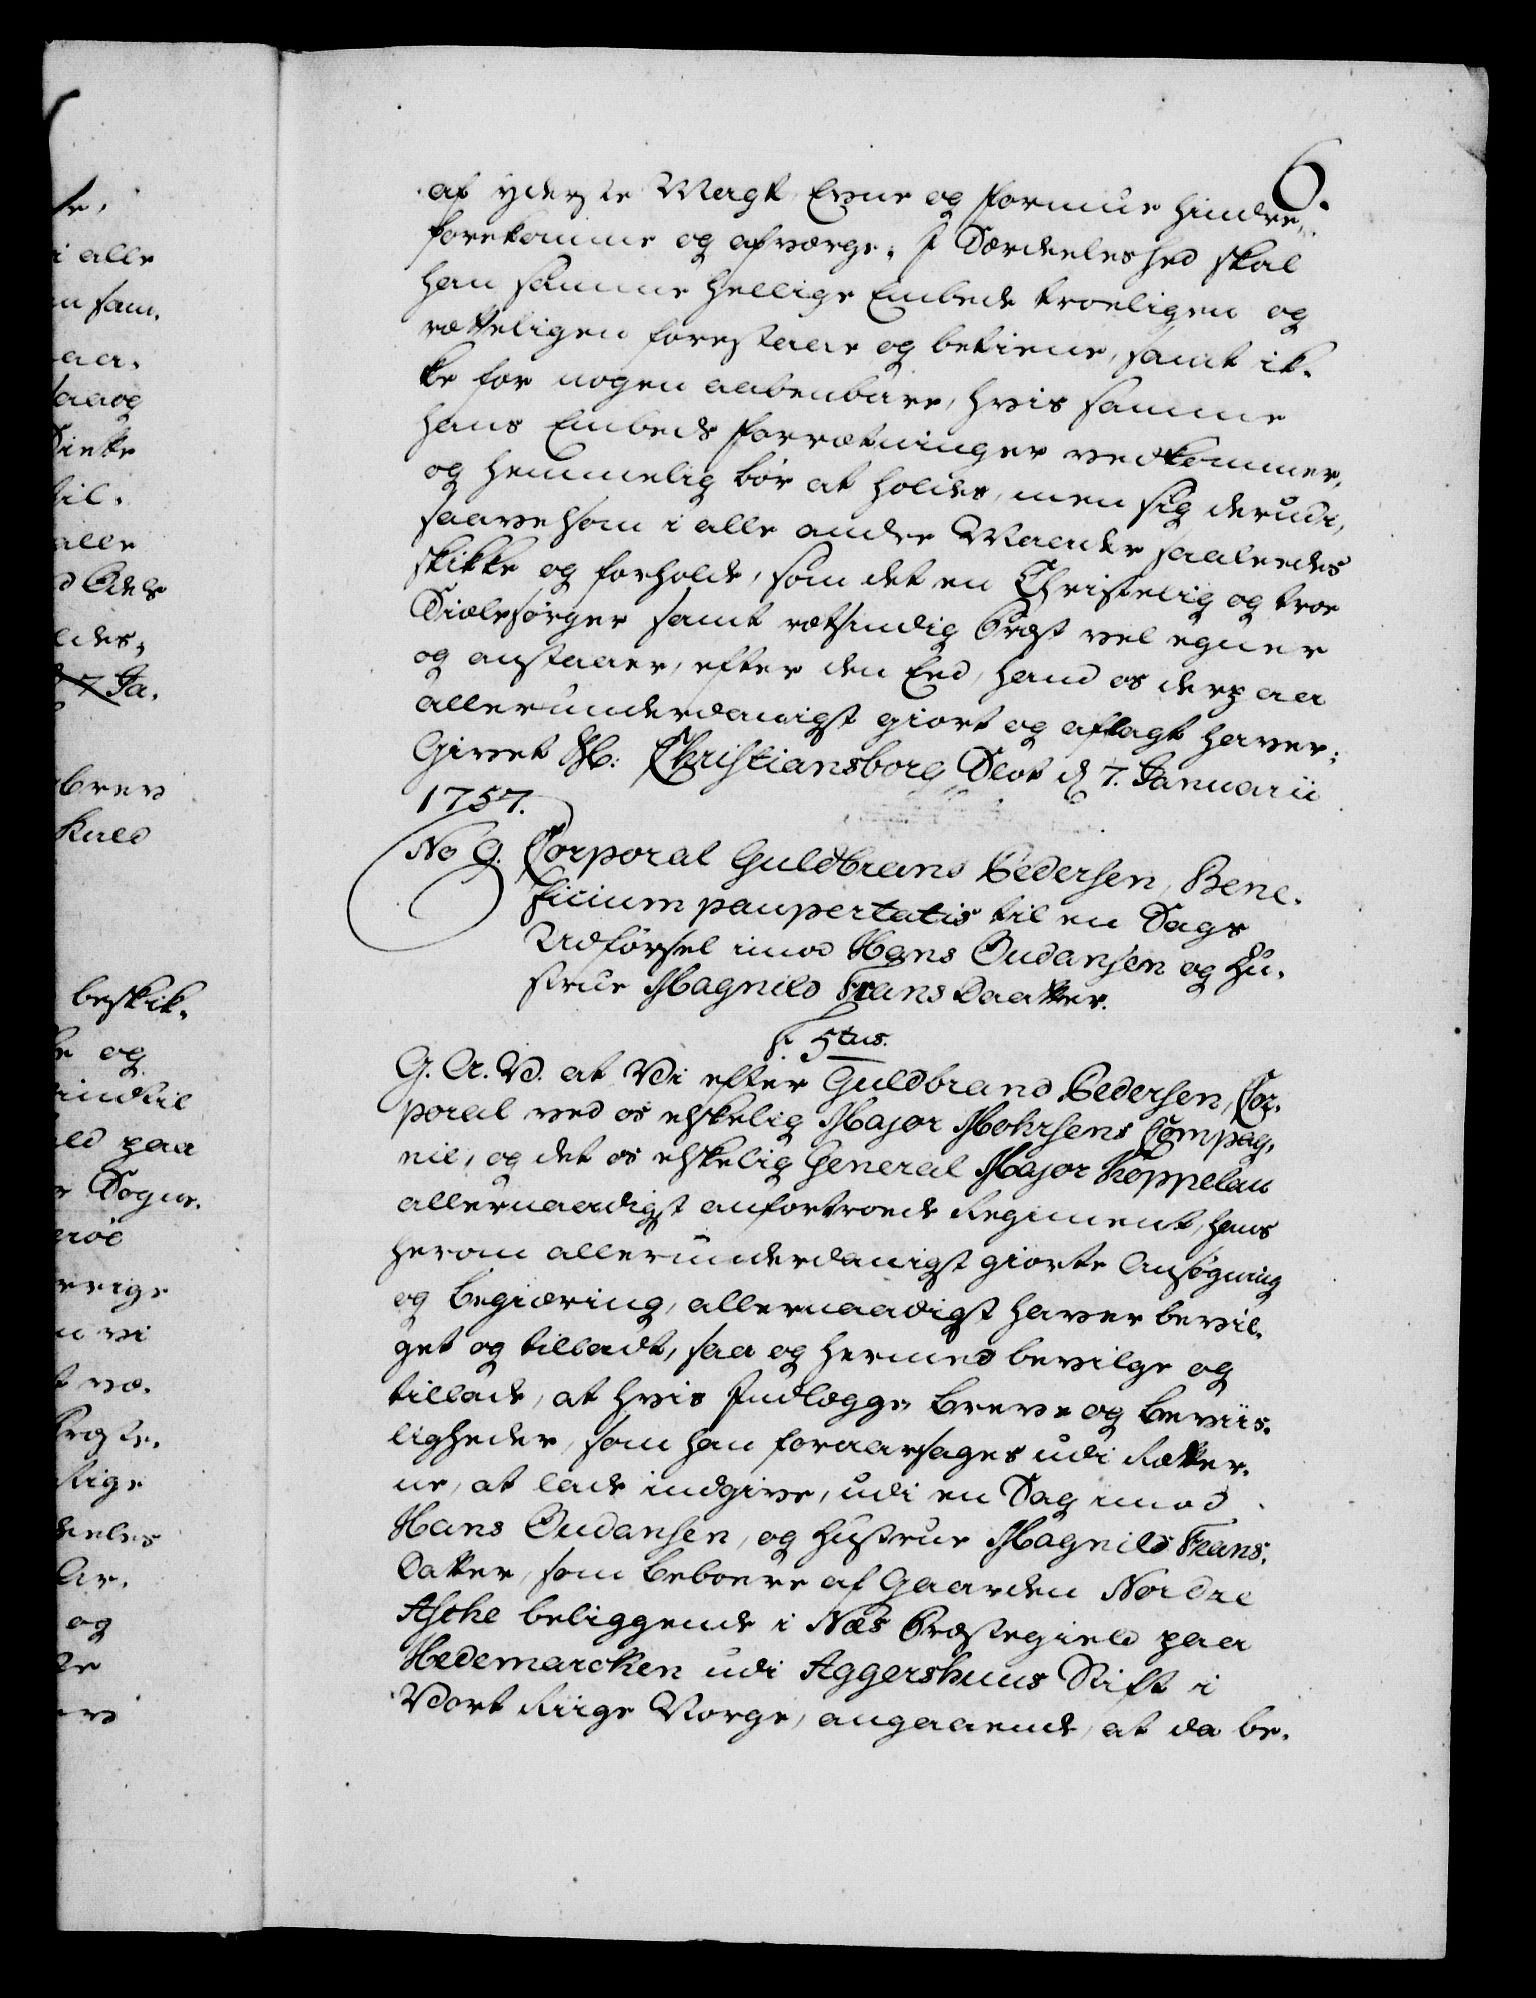 6.
af yderste Magt, Evne og Formue hindre,
forekomme og afværge; I Særdeleshed skal
han samme hellige Embede troeligen og
rætteligen forestaae og betiene, samt ik-
ke for nogen aabenbare, hvis samme
hans Embeds Forrætninger vedkommer,
og hemmelig bør at holdes, men sig derudi,
saavelsom i alle andre Maader saaledes
skikke og forholde, som det en Christelig og troe
Siælesørger samt rætsindig Præst vel egner
og anstaaer, efter den Eed, hand os derpaa
allerunderdanigst giort og aflagt haver;
Givet Christiansborg Slot d 7. Januarii
1757.
No 9. Corporal Guldbrand Pedersen, Bene-
ficium paupertatis til en Sags
Udførsel imod Hans Oudansen og Hu-
strue Magnild Frans Daatter.
F. 5tus.
G. A. V. at Vi efter Guldbrand Pedersen, Cor-
poral ved os elskelig Major Mohrsens Compag-
nie, og det os elskelig General Major Koppelau
allernaadigst anfortroede Regiment, hans
herom allerunderdanigst giorte Ansøgning
og Begiæring, allernaadigst haver bevil-
get og tilladt, saa og hermed bevilge og
tillade, at hvis Indlægge, Breve og Beviis-
ligheder, som han foraarsages udi Rætter-
ne, at lade indgive, udi en Sag imod
Hans Oudansen, og Hustrue Magnild Frans-
Datter, som Beboere af Gaarden Nordre
Aske beliggende i Næs Præstegield paa
Hedemarcken udi Aggershuus Stift i
Vort Riige Norge, angaaende, at da be-
i alle
saaog
alle
beskik-
og
paa
Sogne-
vi
og